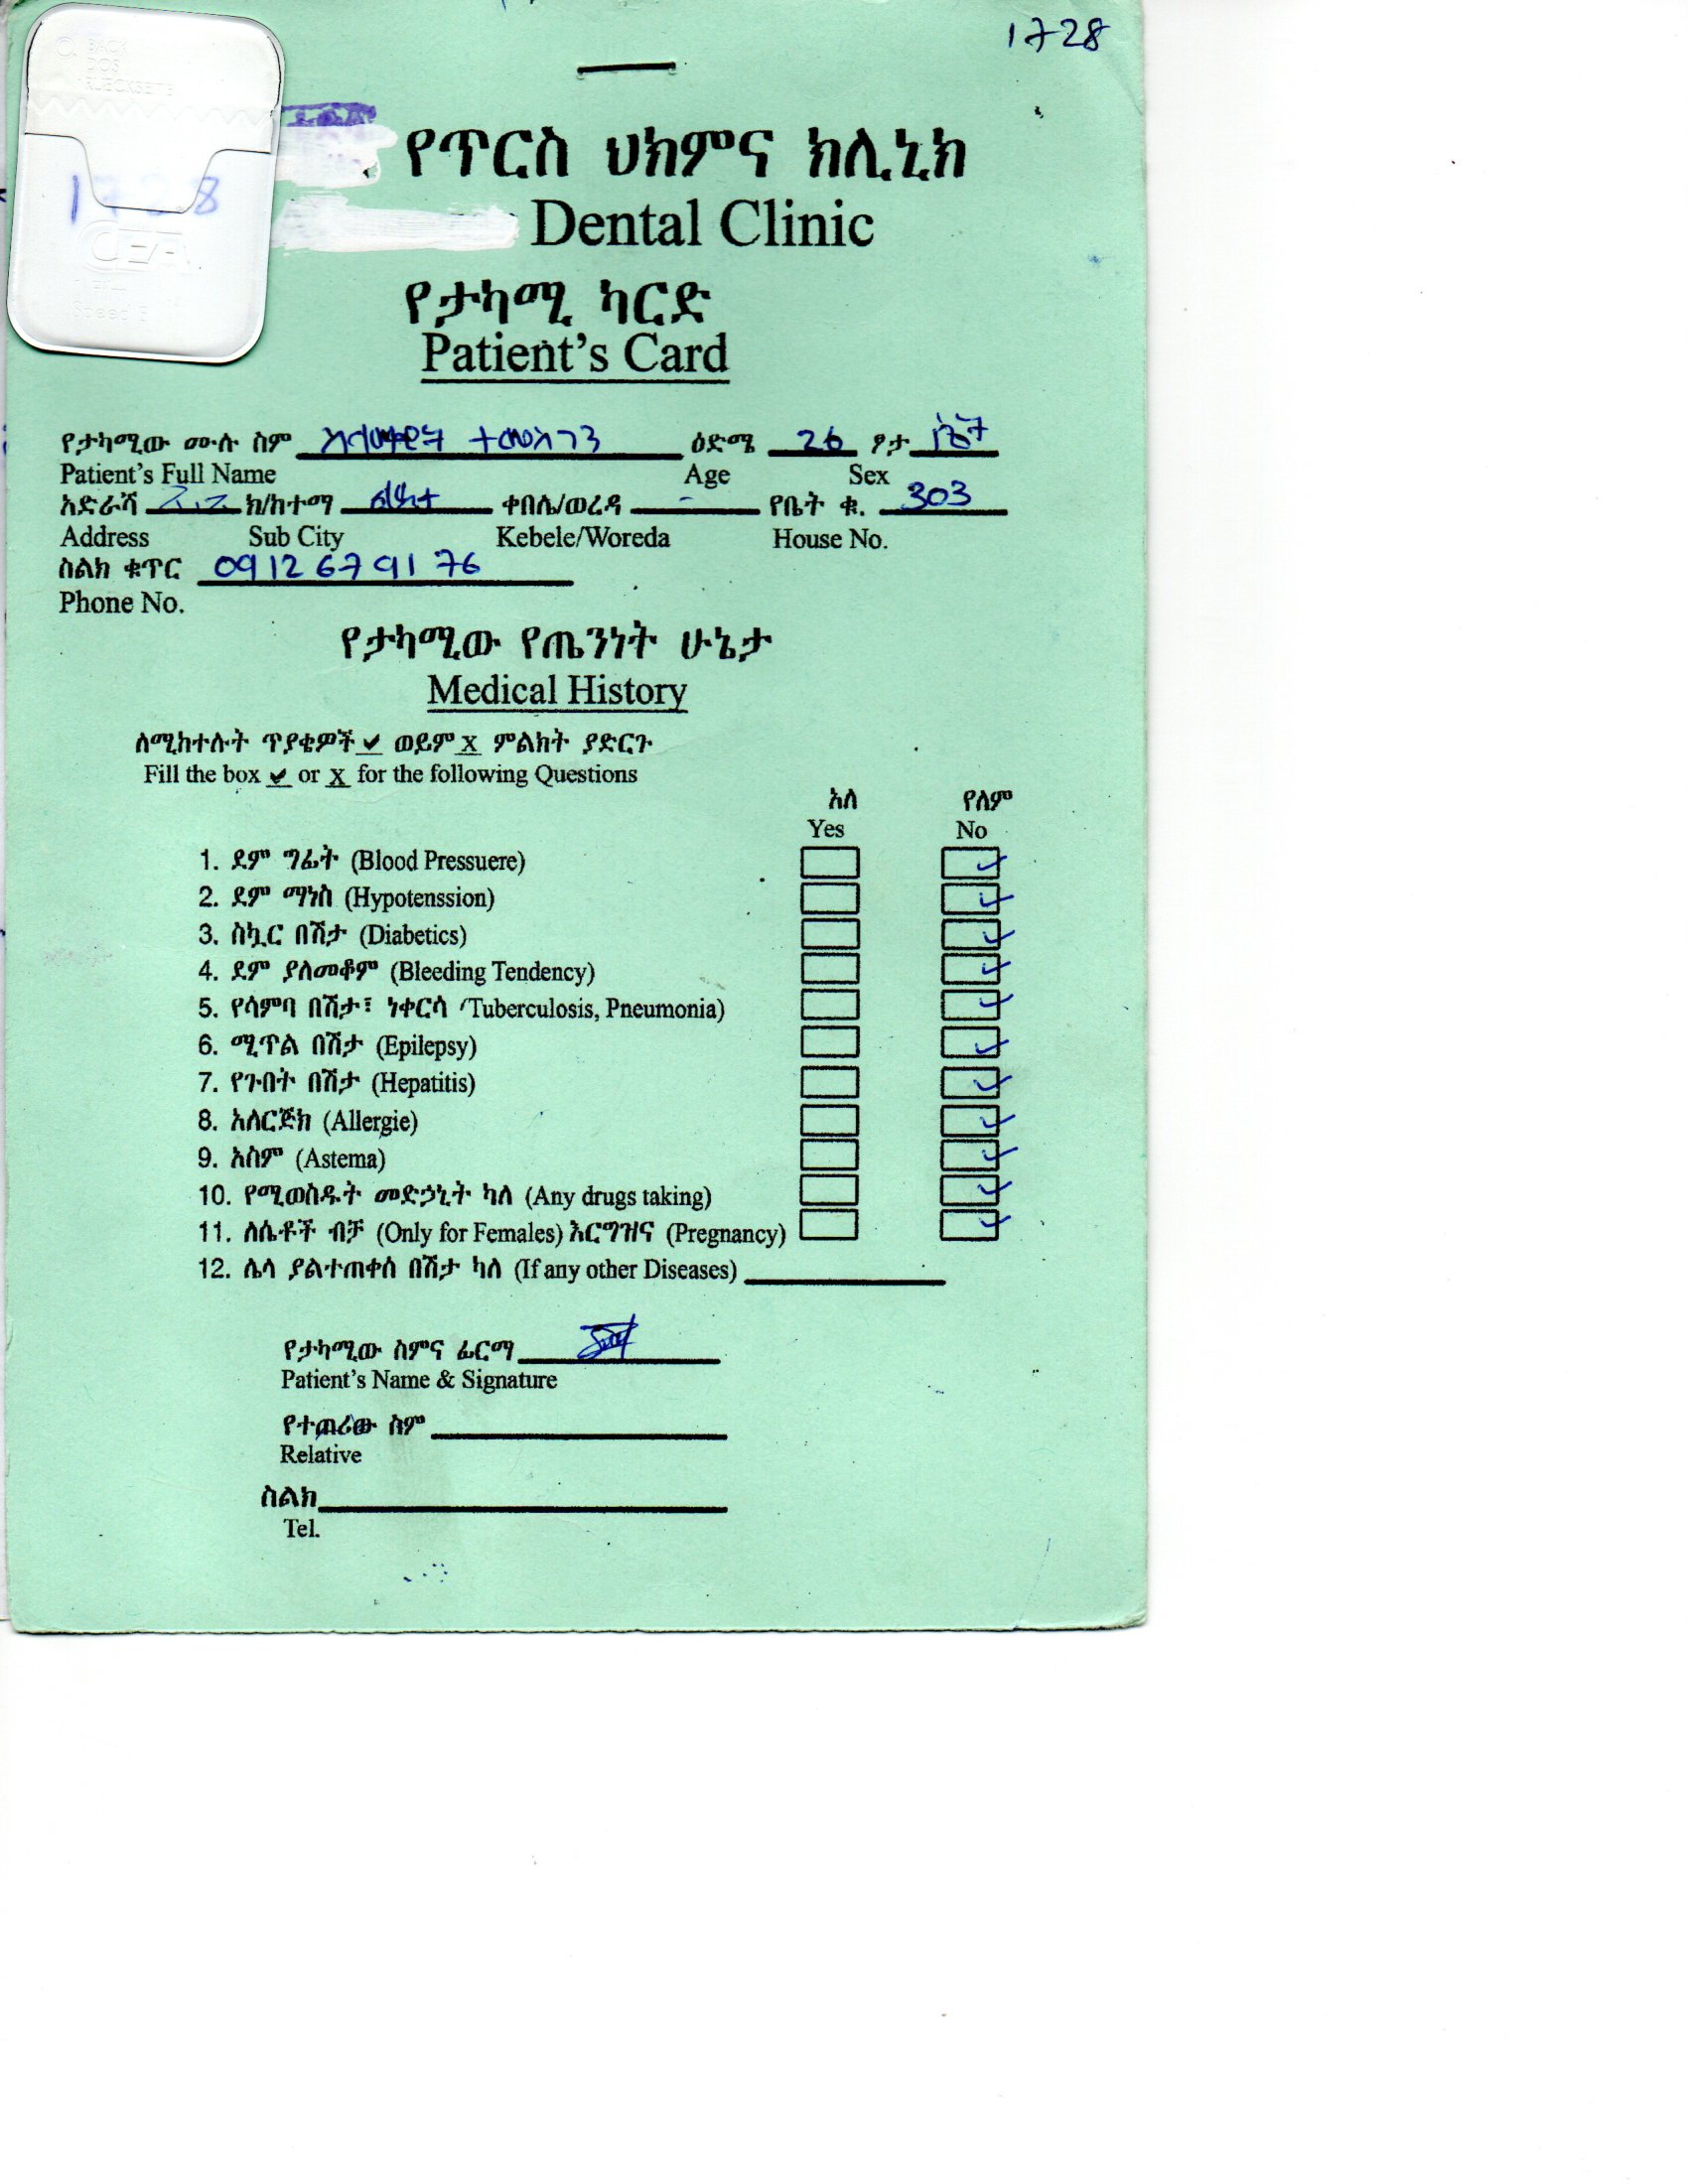 1728
BACK
DOS
RUECKSEITE
1728
CEA
Speed E
የጥርስ ህክምና ክሊኒክ
Dental Clinic
የታካሚ ካርድ
Patient's Card
የታካሚው ሙሉ ስም ተመስገን ዕድሜ 26 ፆታ
Patient's Full Name Age Sex
አድራሻ ክ/ከተማ ልደታ ቀበሌ/ወረዳ - የቤት ቁ. 303
Address Sub City Kebele/Woreda House No.
ስልክ ቁጥር 0912 67 91 76
Phone No.
የታካሚው የጤንነት ሁኔታ
Medical History
ለሚከተሉት ጥያቄዎች ✔ ወይም x ምልክት ያድርጉ
Fill the box ✔ or x for the following Questions
አለ የለም
Yes No
1. ደም ግፊት (Blood Pressuere) ✓
2. ደም ማነስ (Hypotenssion) ✓
3. ስኳር በሽታ (Diabetics) ✓
4. ደም ያለመቆም (Bleeding Tendency) ✓
5. የሳምባ በሽታ፣ ነቀርሳ (Tuberculosis, Pneumonia) ✓
6. ሚጥል በሽታ (Epilepsy) ✓
7. የጉበት በሽታ (Hepatitis) ✓
8. አለርጅክ (Allergie) ✓
9. አስም (Astema) ✓
10. የሚወስዱት መድኃኒት ካለ (Any drugs taking) ✓
11. ለሴቶች ብቻ (Only for Females) እርግዝና (Pregnancy) ✓
12. ሌላ ያልተጠቀሰ በሽታ ካለ (If any other Diseases)
የታካሚው ስምና ፊርማ
Patient's Name & Signature
የተጠሪው ስም
Relative
ስልክ
Tel.